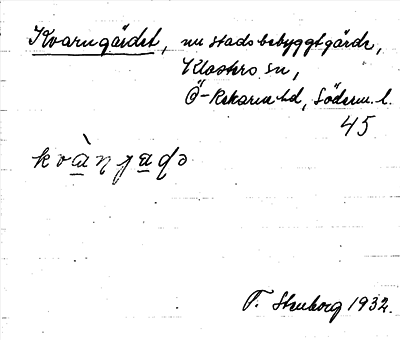 Kvarngärdet, nu stadsbebyggt gärde,
Klosters sn,
Ö-Rekarne hd, Söderm. l.
45
F. Stenborg 1932.